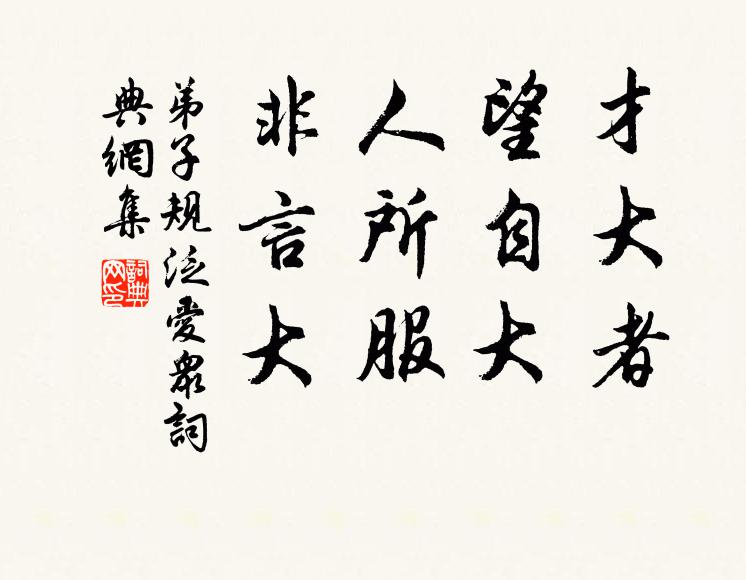 才大者
望自大
人所服
非言大
弟子規泛愛衆詞
典網集
詞典
网印